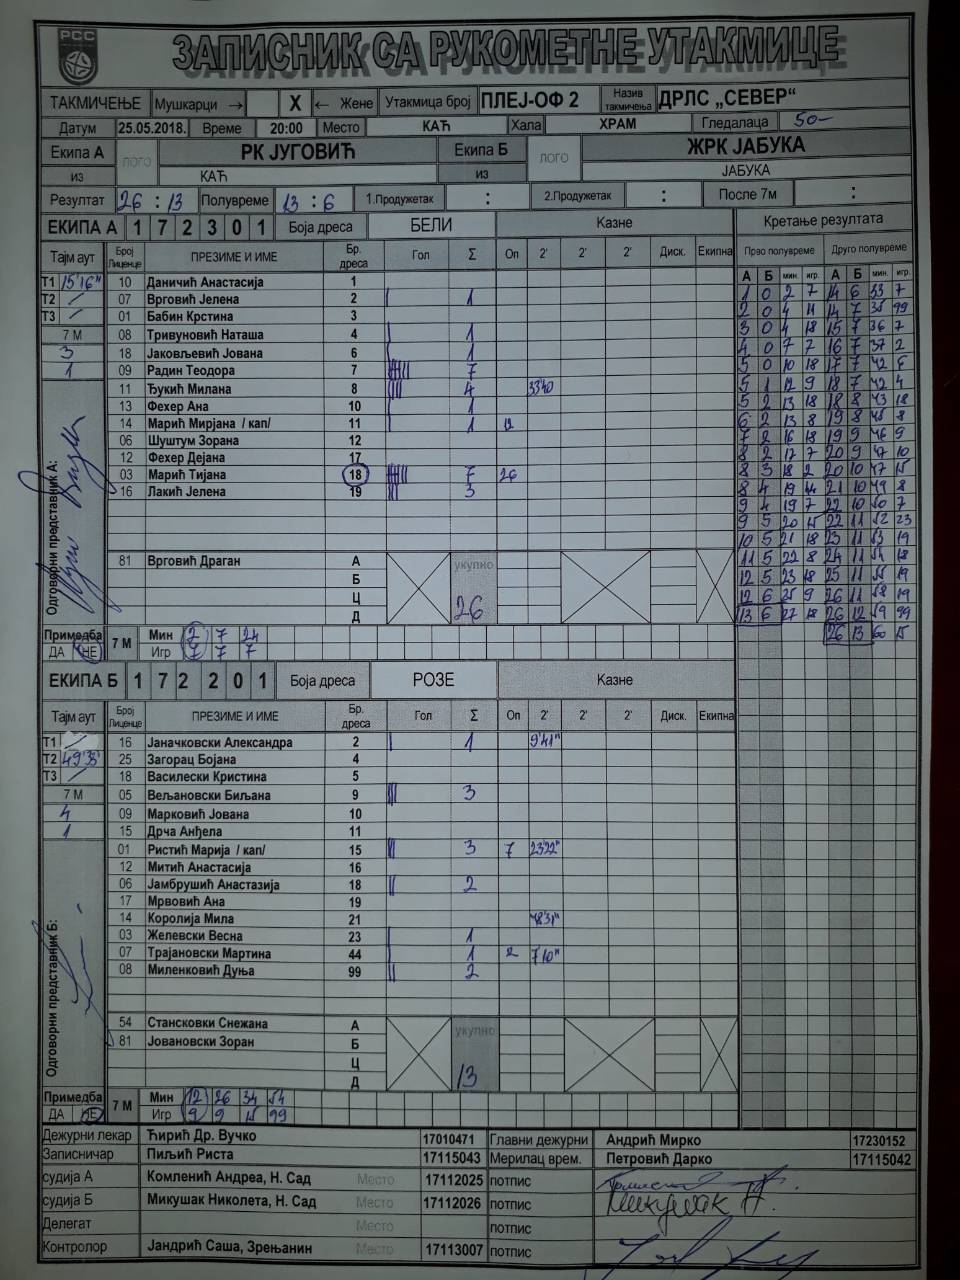 РСС
ЗАПИСНИК СА РУКОМЕТНЕ УТАКМИЦЕ
ТАКМИЧЕЊЕ Мушкарци → X ← Жене Утакмица број ПЛЕЈ-ОФ 2 Назив такмичења ДРЛС „СЕВЕР“
Датум 25.05.2018. Време 20:00 Место КАЋ Хала ХРАМ Гледалаца 50-
Екипа А лого РК ЈУГОВИЋ Екипа Б лого ЖРК ЈАБУКА
из КАЋ из ЈАБУКА
Резултат 26 : 13 Полувреме 13 : 6 1.Продужетак : 2.Продужетак : После 7м :
ЕКИПА А 1 7 2 3 0 1 Боја дреса БЕЛИ Казне Кретање резултата
Тајм аут Број Лиценце ПРЕЗИМЕ И ИМЕ Бр. дреса Гол Σ Оп 2' 2' 2' Диск. Екипна Прво полувреме Друго полувреме
А Б мин. игр. А Б мин. игр.
Т1 15'16" 10 Даничић Анастасија 1
Т2 / 07 Врговић Јелена 2 1
Т3 / 01 Бабин Крстина 3
7 М 08 Тривуновић Наташа 4 1
3 18 Јаковљевић Јована 6 1
1 09 Радин Теодора 7 7
11 Ђукић Милана 8 4 33'40
13 Фехер Ана 10 1
14 Марић Мирјана / кап/ 11 1 12
06 Шуштум Зорана 12
12 Фехер Дејана 17
03 Марић Тијана 18 7 26
16 Лакић Јелена 19 3
81 Врговић Драган А укупно
Б
Ц 26
Д
Одговорни представник А:
1 0 2 7 14 6 33 7
2 0 4 11 14 7 35 99
3 0 4 18 15 7 36 7
4 0 7 7 16 7 37 2
5 0 10 18 17 7 42 6
5 1 12 9 18 7 42 4
5 2 13 18 18 8 43 18
6 2 13 8 19 8 45 8
7 2 16 18 19 9 46 9
8 2 17 7 20 9 47 10
8 3 18 2 20 10 47 15
8 4 19 44 21 10 49 8
9 4 19 7 22 10 50 7
9 5 20 15 22 11 52 23
10 5 21 18 23 11 53 19
11 5 22 8 24 11 54 18
12 5 23 18 25 11 55 19
12 6 25 9 26 11 58 19
13 6 27 18 26 12 59 99
26 13 60 15
Примедба 7 М Мин 2 7 24
ДА НЕ Игр 7 7 7
ЕКИПА Б 1 7 2 2 0 1 Боја дреса РОЗЕ Казне
Тајм аут Број Лиценце ПРЕЗИМЕ И ИМЕ Бр. дреса Гол Σ Оп 2' 2' 2' Диск. Екипна
Т1 / 16 Јаначковски Александра 2 1 9'41"
Т2 49'38" 25 Загорац Бојана 4
Т3 / 18 Василески Кристина 5
7 М 05 Вељановски Биљана 9 3
4 09 Марковић Јована 10
1 15 Дрча Анђела 11
01 Ристић Марија / кап/ 15 3 7 23'22"
12 Митић Анастасија 16
06 Јамбрушић Анастазија 18 2
17 Мрвовић Ана 19
14 Королија Мила 21 48'31"
03 Желевски Весна 23 1
07 Трајановски Мартина 44 1 2 7'10"
08 Миленковић Дуња 99 2
54 Стансковки Снежана А укупно
81 Јовановски Зоран Б
Ц 13
Д
Одговорни представник Б:
Примедба 7 М Мин 12 26 34 54
ДА НЕ Игр 9 9 15 99
Дежурни лекар Ћирић Др. Вучко 17010471 Главни дежурни Андрић Мирко 17230152
Записничар Пиљић Риста 17115043 Мерилац врем. Петровић Дарко 17115042
судија А Комленић Андреа, Н. Сад Место 17112025 потпис
судија Б Микушак Николета, Н. Сад Место 17112026 потпис Микушак Н.
Делегат Место потпис
Контролор Јандрић Саша, Зрењанин Место 17113007 потпис